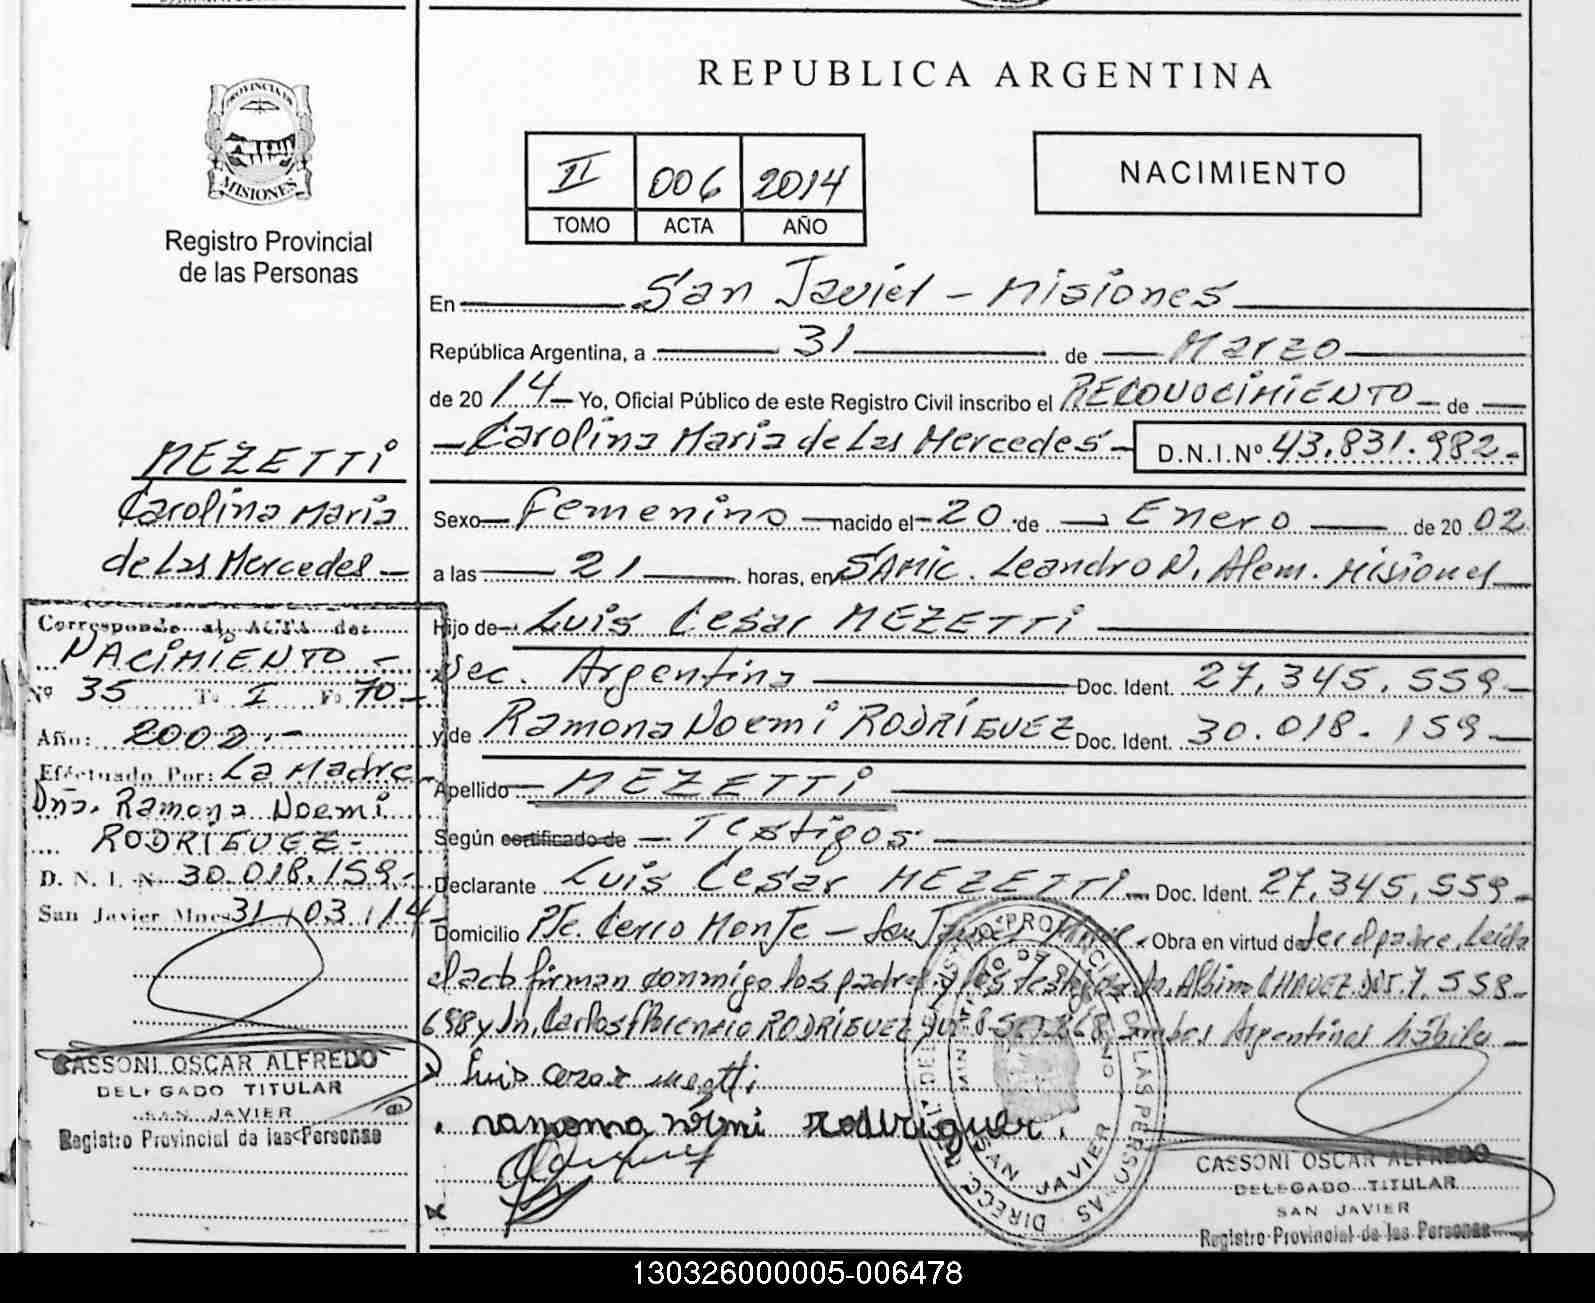 PROVINCIA DE
MISIONES
Registro Provincial
de las Personas
MEZETTI
Carolina Maria
de Las Mercedes —
Corresponde al ACTA de:
NACIMIENTO —
Nº 35 Tº I Fº 70 —
Año: 2002 —
Efectuado Por: La Madre
Dña. Ramona Noemi
RODRÍGUEZ —
D. N. I. Nº 30.018.159 —
San Javier Mnes 31/03/14
CASSONI OSCAR ALFREDO
DELEGADO TITULAR
SAN JAVIER
Registro Provincial de las Personas
REPUBLICA ARGENTINA
II 006 2014
TOMO ACTA AÑO
NACIMIENTO
En San Javier — Misiones
República Argentina, a 31 de Marzo
de 20 14 — Yo, Oficial Público de este Registro Civil inscribo el RECONOCIMIENTO — de
— Carolina Maria de Las Mercedes — D.N.I.Nº 43.831.982 —
Sexo — Femenino — nacido el — 20 de — Enero — de 20 02
a las 21 horas, en SAMIC. Leandro N. Alem. Misiones
Hijo de — Luis Cesar MEZETTI
Nac. Argentina Doc. Ident. 27.345.559 —
y de Ramona Noemi RODRÍGUEZ Doc. Ident. 30.018.159 —
Apellido — MEZETTI
Según certificado de — Testigos
Declarante Luis Cesar MEZETTI — Doc. Ident. 27.345.559 —
Domicilio Pje. Cerro Monje — San Javier Mnes. Obra en virtud de ser el padre. Leída
el acta firman conmigo los padres y los testigos Dn. Albino CHAVEZ DNI 7.558.
698 y Dn. Carlos Florencio RODRÍGUEZ ambos Argentinos hábiles —
Luis cezar mezetti
ramona noemi Rodriguez
DIRECC. DEL REGISTRO PROVINCIAL DE LAS PERSONAS
SAN JAVIER
CASSONI OSCAR ALFREDO
DELEGADO TITULAR
SAN JAVIER
Registro Provincial de las Personas
130326000005-006478